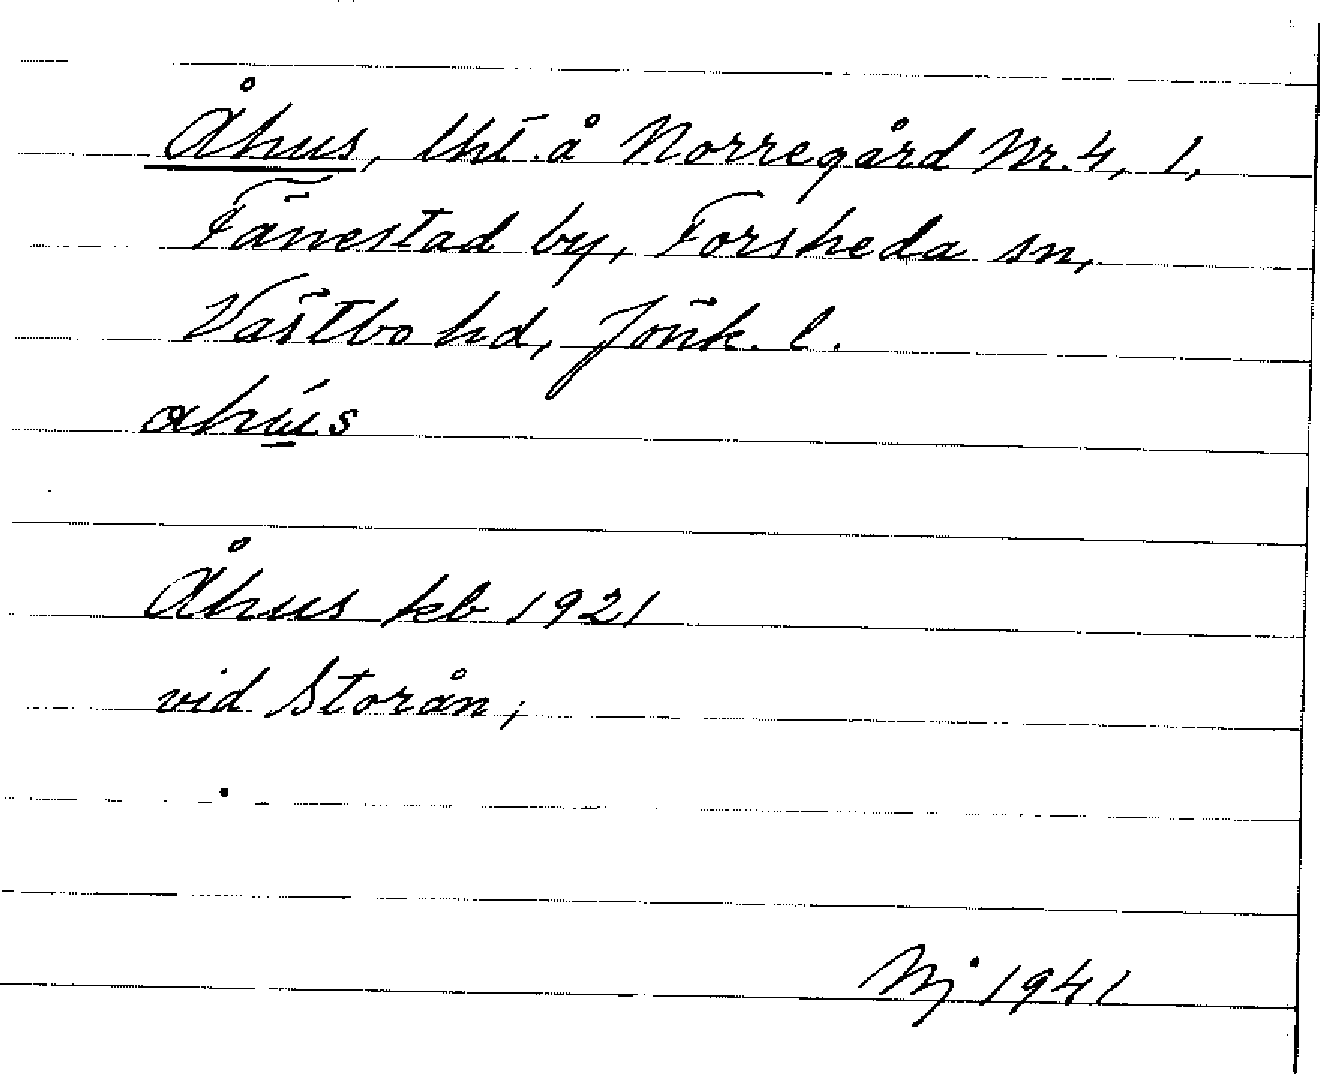 Åhus, lht å Norregård Nr. 4, 1,
Fänestad by, Forsheda sn,
Västbo hd, Jönk. l.
Åhus kb 1921
vid Storån,
1941